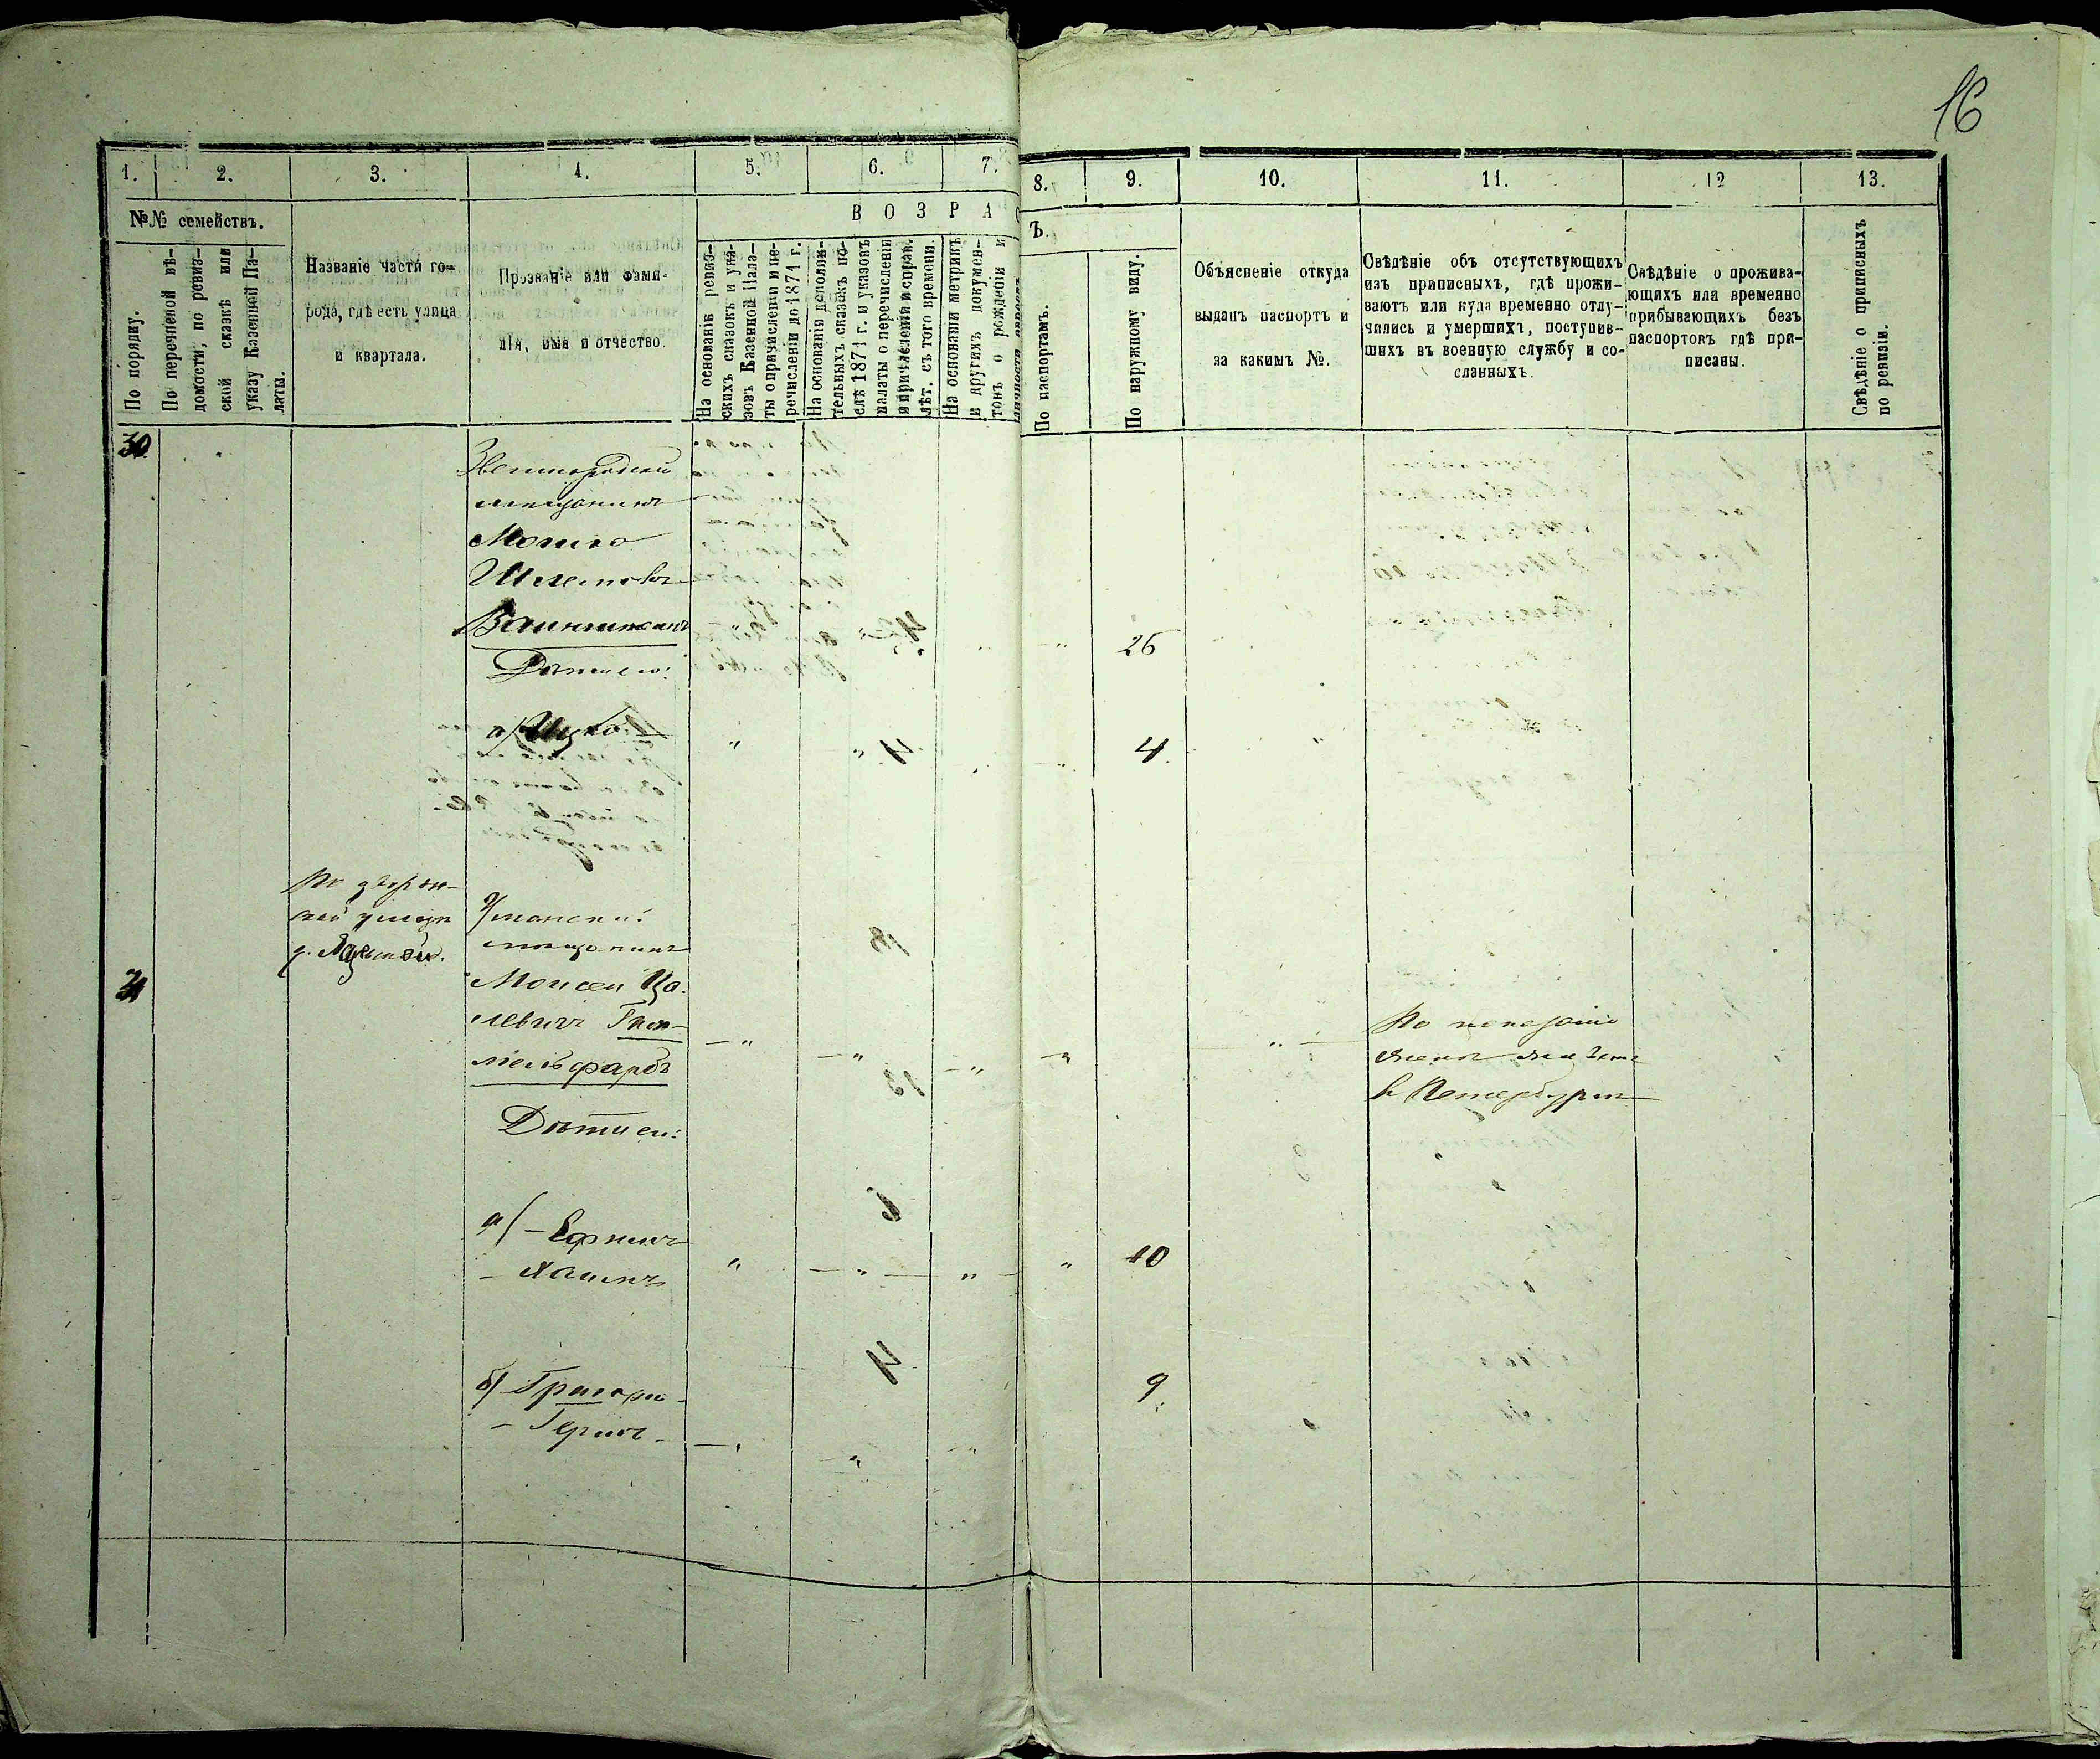 16
1. 2. 3. 4. 5. 6. 7. 8. 9. 10. 11. 12 13.
№№ семействъ.
По порядку.
По перечневой вѣ-
домости, по ревиз-
ской сказкѣ или
указу Казенной Па-
латы.
Названіе части го-
рода, гдѣ есть улица
и квартала.
Прозваніе или фами-
лія, имя и отчество.
В О З Р А С
Ъ.
На основаніи ревиз-
скихъ сказокъ и ука-
зовъ Казенной Пала-
ты о причисленіи и пе-
речисленіи до 1871 г.
На основаніи дополни-
тельныхъ сказокъ по-
слѣ 1871 г. и указовъ
палаты о перечисленіи
и причисленіи и справ.
лѣт. съ того времени.
На основаніи метрикъ
и другихъ докумен-
товъ о рожденіи и
По паспортамъ.
По наружному виду.
Объясненіе откуда
выданъ паспортъ и
за какимъ №.
Свѣдѣніе объ отсутствующихъ
изъ приписныхъ, гдѣ прожи-
ваютъ или куда временно отлу-
чились и умершихъ, поступив-
шихъ въ военную службу и со-
сланныхъ.
Свѣдѣніе о прожива-
ющихъ или временно
прибывающихъ безъ
паспортовъ гдѣ при-
писаны.
Свѣдѣніе о приписныхъ
по ревизіи.
30
Звенигородскій
мещанинъ
Мошко
Шлемовъ
Вайнштейнъ
26
Дѣтей:
а) Ицко
4
улицѣ
Уманскій
мещанинъ
31
Моисей Ца-
левичъ Гим-
мельфарбъ
По показанію
жены живетъ
в Петербургѣ
Дѣтей:
а) Ефимъ
Хаимъ
10
б) Григорій
Гершъ
9